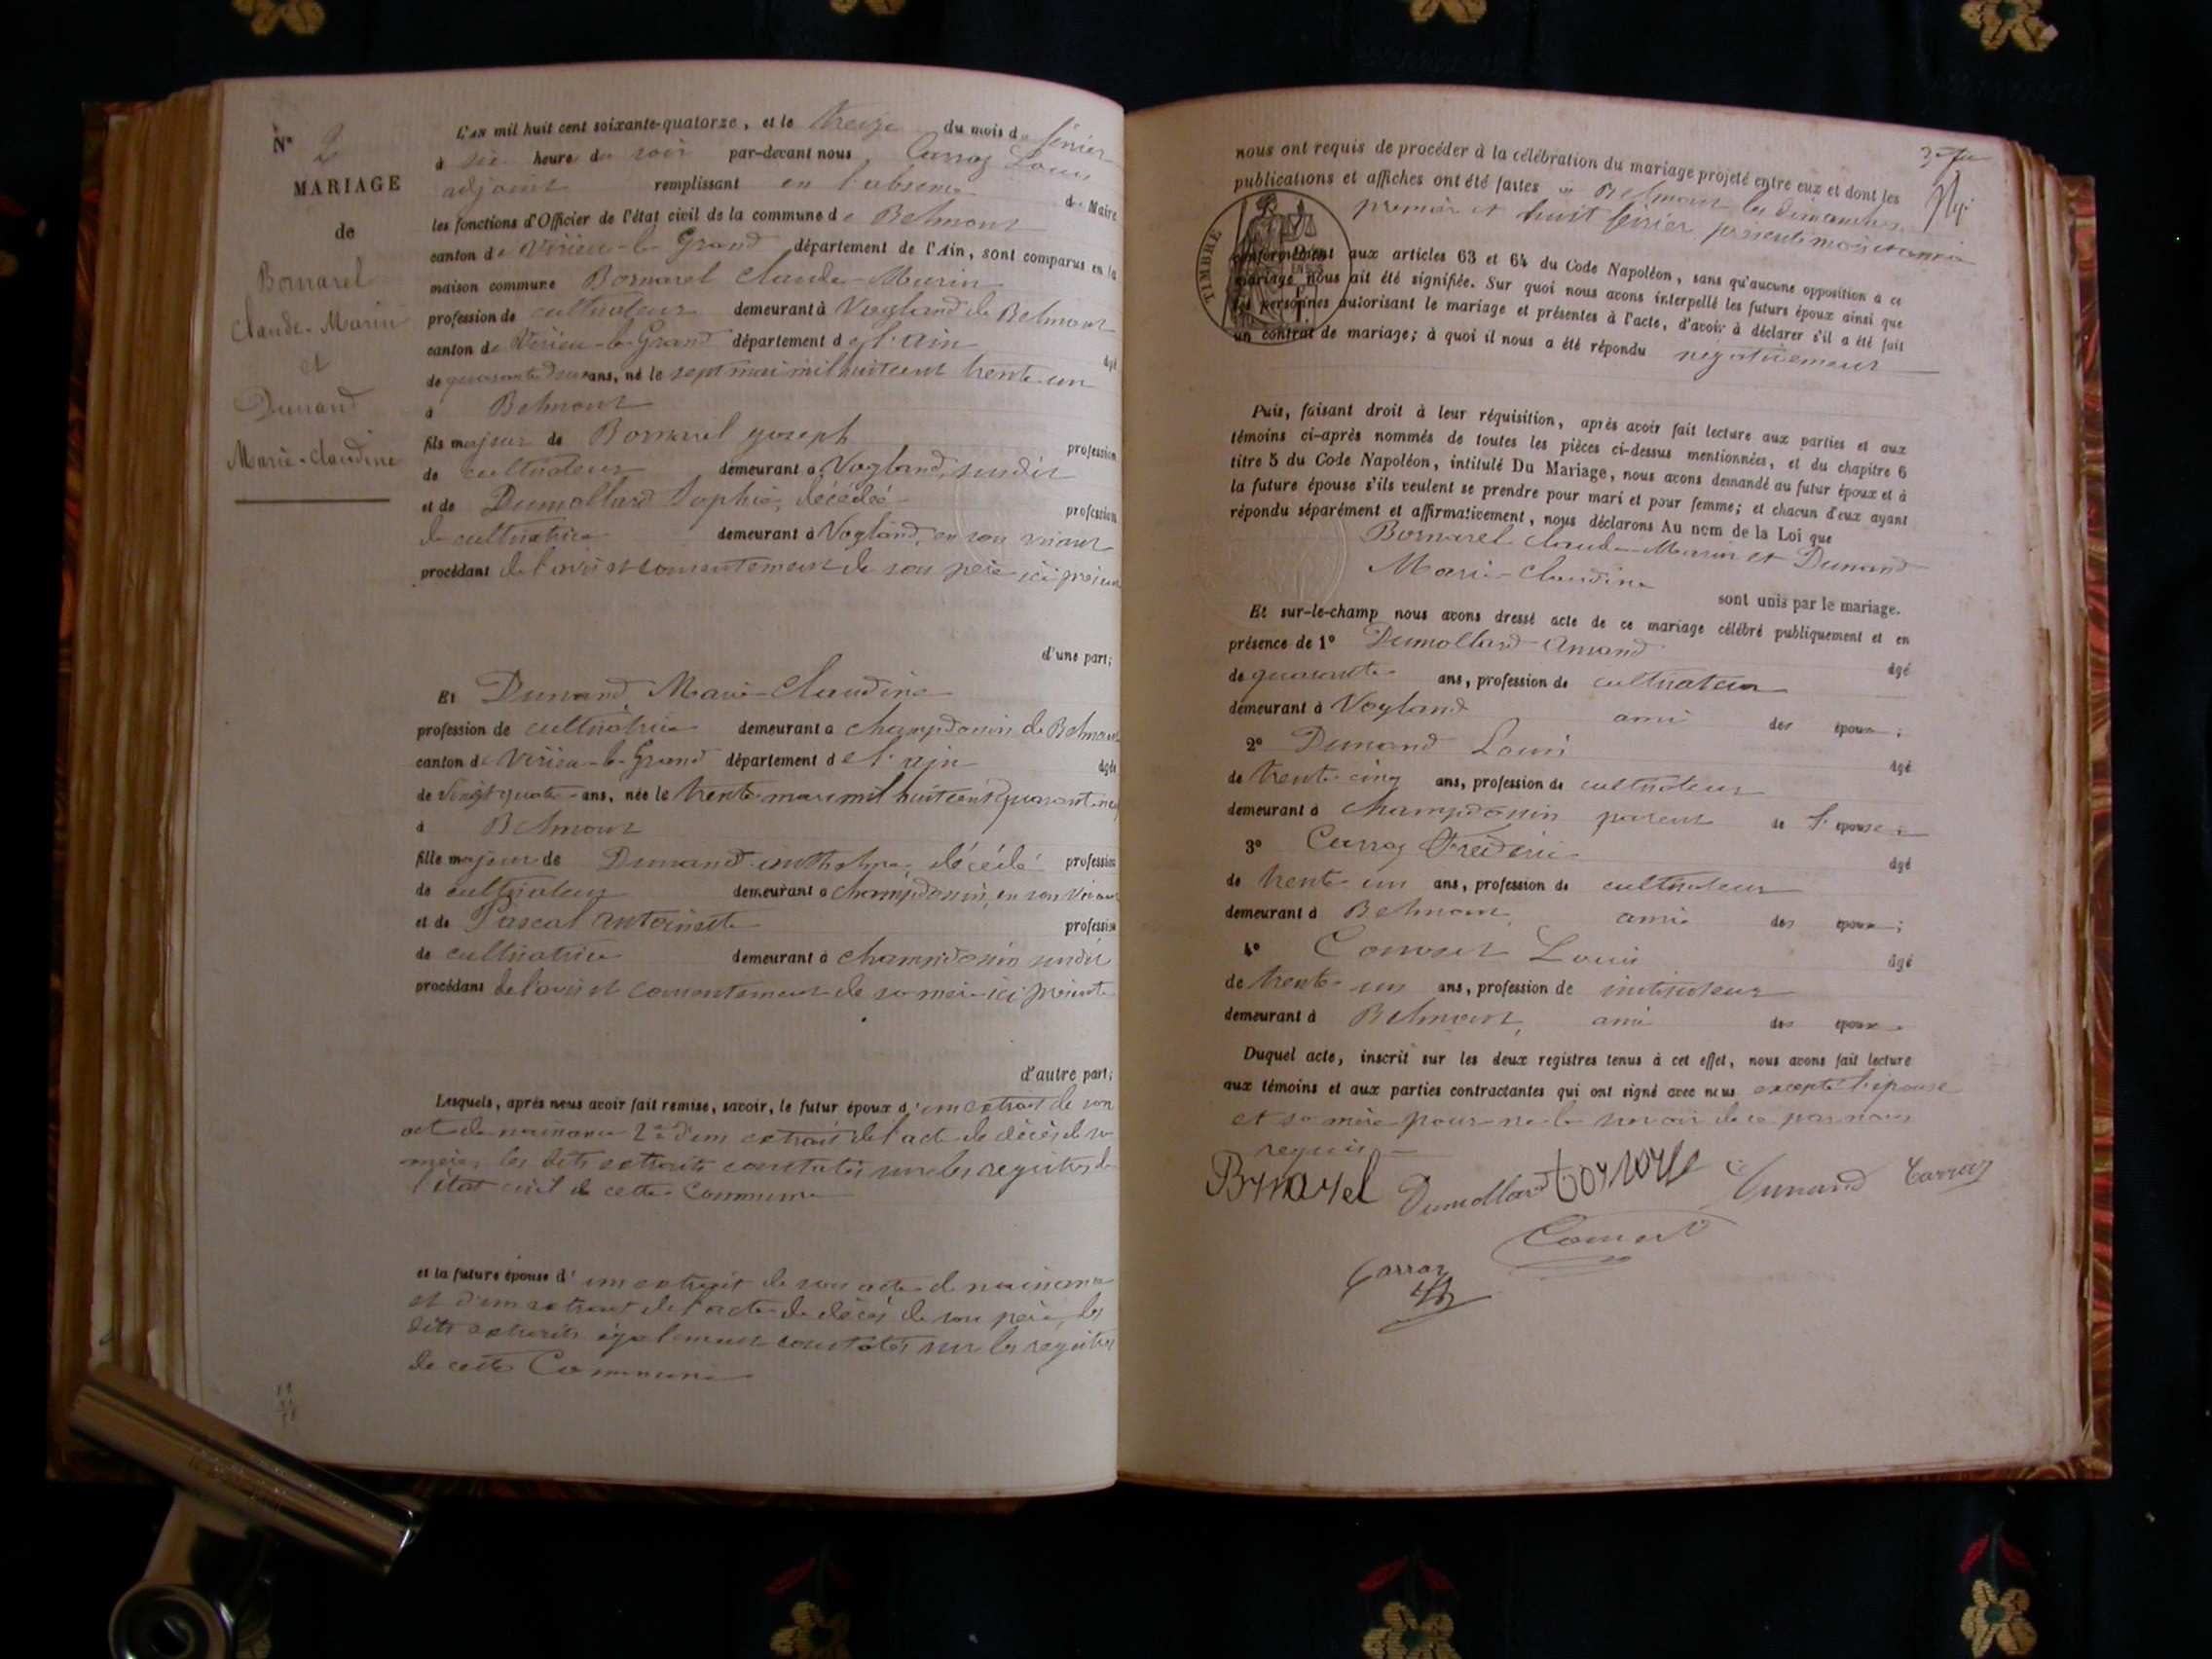 N° 2
MARIAGE
de
Bornarel
Claude-Marin
et
Dunand
Marie-Claudine
L'AN mil huit cent soixante-quatorze, et le treize du mois de février
à six heure du soir par-devant nous Carraz Louis
adjoint remplissant en l'absence du Maire
les fonctions d'Officier de l'état civil de la commune de Belmont
canton de Virieu-le-Grand département de l'Ain, sont comparus en la
maison commune Bornarel Claude-Marin
profession de cultivateur demeurant à Vogland de Belmont
canton de Virieu-le-Grand département de l'ain âgé
de quarante deux ans, né le sept mai mil huit cent trente un
à Belmont
fils majeur de Bornarel joseph profession
de cultivateur demeurant à Vogland, susdit
et de Dumollard Sophie, décédée profession
de cultivatrice demeurant à Vogland, en son vivant
procédant de l'avis et consentement de son père ici présent
d'une part;
Et Dunand Marie-Claudine
profession de cultivatrice demeurant à champdossin de Belmont
canton de Virieu-le-Grand département de l'ain âgée
de vingt quatre ans, née le trente mars mil huit cent quarante neuf
à Belmont
fille majeur de Dunand décédé profession
de cultivateur demeurant à champdossin, en son vivant
et de Pascal antoinette profession
de cultivatrice demeurant à champdossin susdit
procédant de l'avis et consentement de sa mère ici présente
d'autre part;
Lesquels, après nous avoir fait remise, savoir, le futur époux d'un extrait de son
acte de naissance 2° d'un extrait de l'acte de décès de sa
mère, les dits extraits constatés sur les registres de
l'état civil de cette Commune
et la future épouse d'un extrait de son acte de naissance
et d'un extrait de l'acte de décès de son père, les
dits extraits également constatés sur les registres
de cette Commune
nous ont requis de procéder à la célébration du mariage projeté entre eux et dont les
publications et affiches ont été faites à Belmont les dimanches
premier et huit février présents mois et année
TIMBRE
conformément aux articles 63 et 64 du Code Napoléon, sans qu'aucune opposition à ce
mariage nous ait été signifiée. Sur quoi nous avons interpellé les futurs époux ainsi que
les personnes autorisant le mariage et présentes à l'acte, d'avoir à déclarer s'il a été fait
un contrat de mariage; à quoi il nous a été répondu négativement
Puis, faisant droit à leur réquisition, après avoir fait lecture aux parties et aux
témoins ci-après nommés de toutes les pièces ci-dessus mentionnées, et du chapitre 6
titre 5 du Code Napoléon, intitulé Du Mariage, nous avons demandé au futur époux et à
la future épouse s'ils veulent se prendre pour mari et pour femme; et chacun d'eux ayant
répondu séparément et affirmativement, nous déclarons Au nom de la Loi que
Bornarel Claude-Marin et Dunand
Marie-Claudine
sont unis par le mariage.
Et sur-le-champ nous avons dressé acte de ce mariage célébré publiquement et en
présence de 1° Dumollard Amand âgé
de quarante ans, profession de cultivateur
demeurant à Vogland ami des époux;
2° Dunand Louis âgé
de trente-cinq ans, profession de cultivateur
demeurant à champdossin parent de l'épouse;
3° Carraz Frédéric âgé
de trente-un ans, profession de cultivateur
demeurant à Belmont, ami des époux;
4° Louis âgé
de trente-un ans, profession de instituteur
demeurant à Belmont, ami des époux.
Duquel acte, inscrit sur les deux registres tenus à cet effet, nous avons fait lecture
aux témoins et aux parties contractantes qui ont signé avec nous excepté l'épouse
et sa mère pour ne le savoir de ce par nous
requis
Bornarel Dumollard Dunand Carraz
Carraz